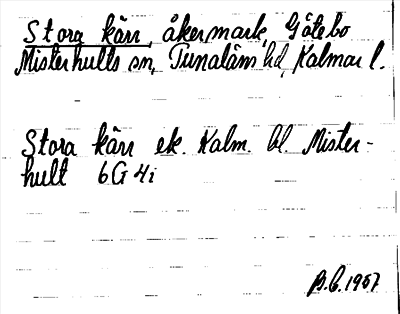 Stora kärr, åkermark, Götebo
Misterhults sn, Tunaläns hd, Kalmar l.
Stora kärr ek. Kalm. bl. Mister-
hult 6G 4i
B.C. 1967